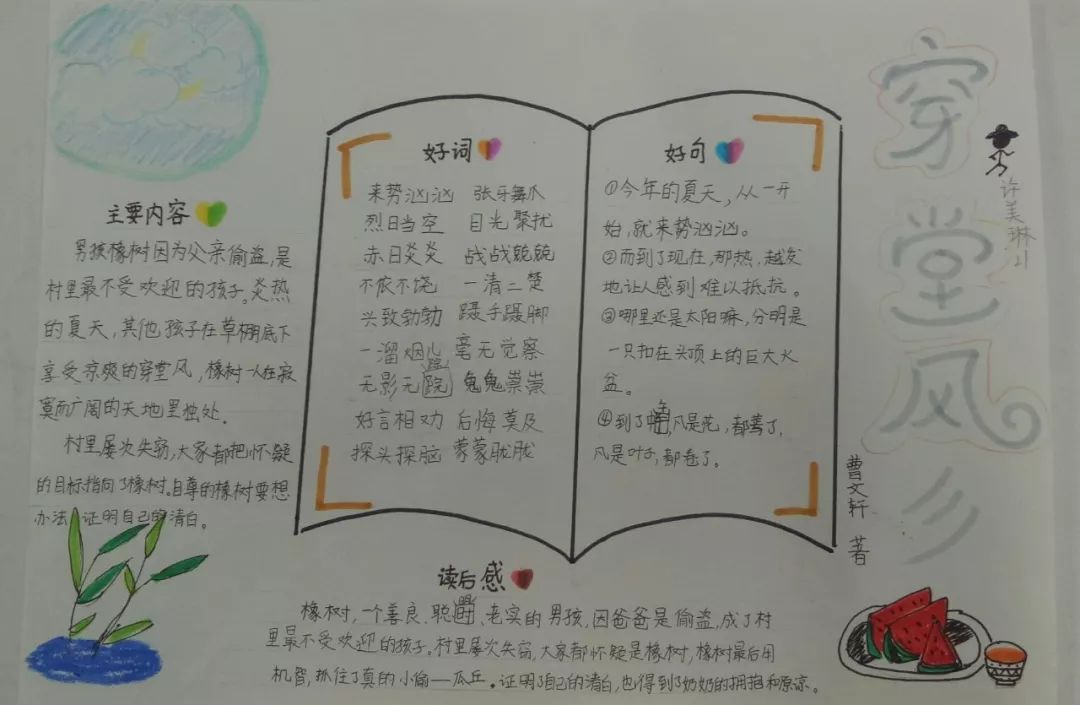 穿堂风
许美琳 21
曹文轩 著
主要内容
男孩橡树因为父亲偷盗,是
村里最不受欢迎的孩子。炎热
的夏天,其他孩子在草棚底下
享受凉爽的穿堂风,橡树一人在寂
寞而广阔的天地里独处.
村里屡次失窃,大家都把怀疑
的目标指向了橡树。自尊的橡树要想
办法 证明自己的清白。
好词
来势汹汹 张牙舞爪
烈日当空 目光聚扰
赤日炎炎 战战兢兢
不依不饶 一清二楚
兴致勃勃 蹑手蹑脚
一溜烟儿 毫无觉察
无影无踪 鬼鬼祟祟
好言相劝 后悔莫及
探头探脑 蒙蒙眬眬
好句
①今年的夏天,从一开
始,就来势汹汹。
②而到了现在,那热,越发
地让人感到难以抵抗。
③哪里还是太阳嘛,分明是
一只扣在头顶上的巨大火
盆。
④到了 ,风是花,都蔫了,
风是叶子,都卷了。
读后感
橡树,一个善良、聪明、老实的男孩,因爸爸是偷盗,成了村
里最不受欢迎的孩子。村里屡次失窃,大家都怀疑是橡树,橡树最后用
机智,抓住了真的小偷——瓜丘。证明了自己的清白,也得到了奶奶的拥抱和原谅。